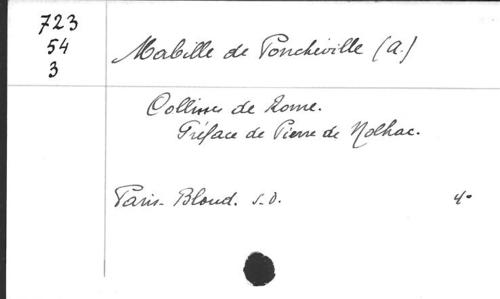 723
54
3
Mabille de Poncheville (A.)
Collines de Rome.
Préface de Pierre de Nolhac.
Paris. Bloud. s.d. 4o